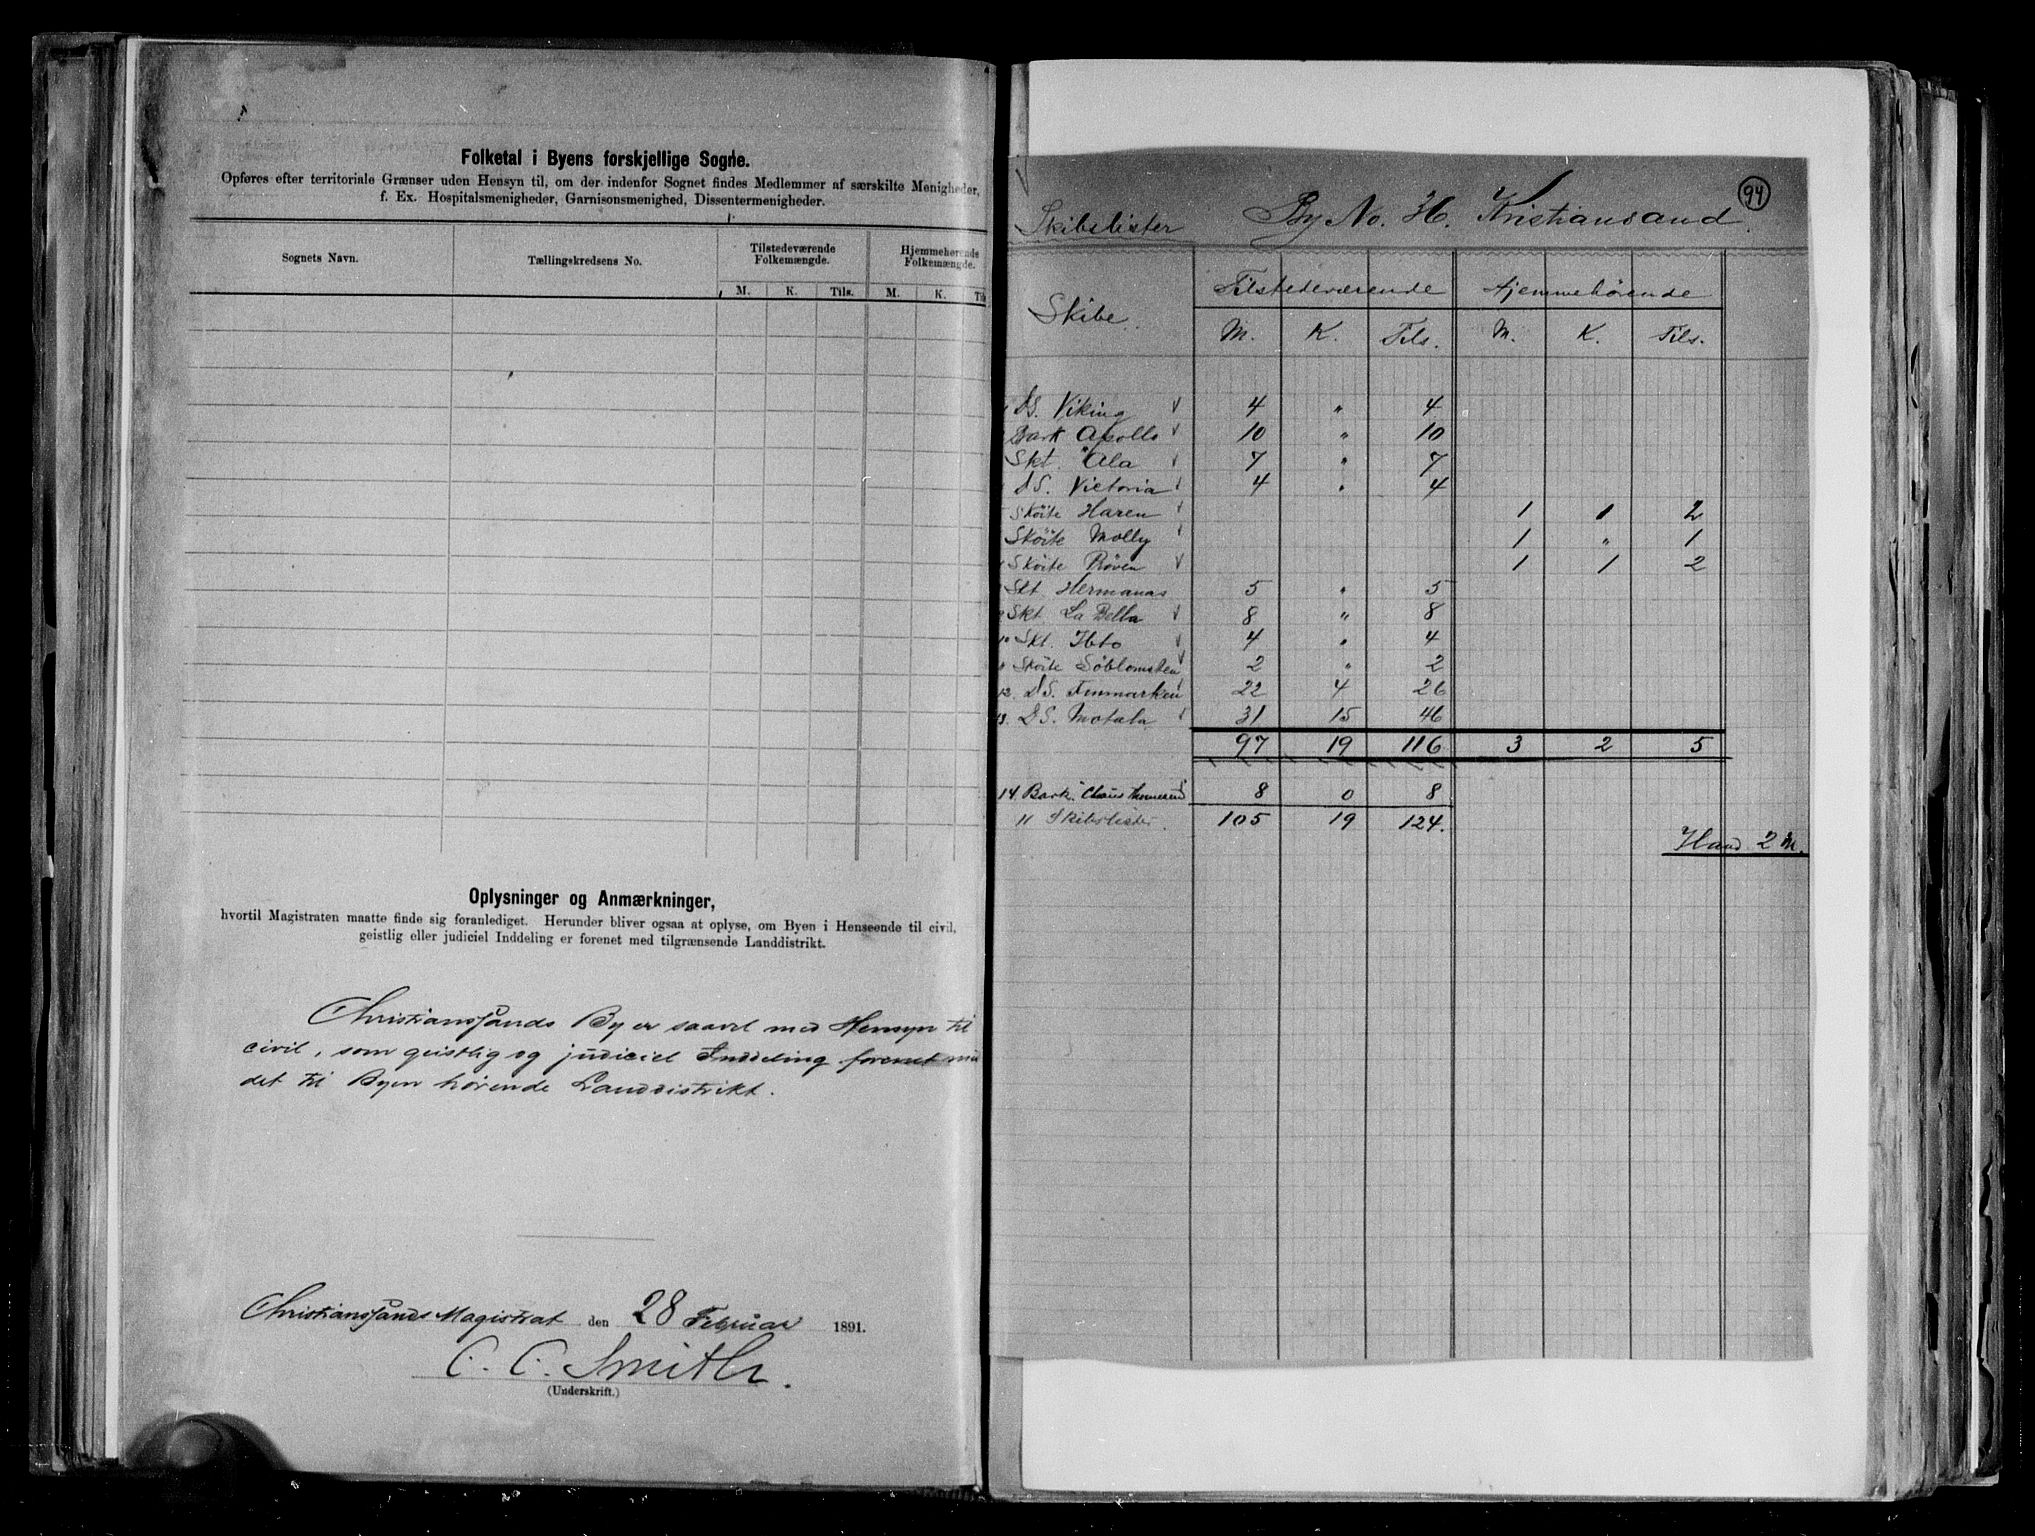 Folketal i Byens forskjellige Sogne.
Opføres efter territoriale Grænser uden Hensyn til, om der indenfor Sognet findes Medlemmer af særskilte Menigheder,
f. Ex. Hospitalsmenigheder, Garnisonsmenighed, Dissentermenigheder.
Sognets Navn. Tællingskredsens No. Tilstedeværende Folkemængde. Hjemmehørende Folkemængde.
M. K. Tils. M. K. Tils
Oplysninger og Anmærkninger,
hvortil Magistraten maatte finde sig foranlediget. Herunder bliver ogsaa at oplyse, om Byen i Henseende til civil,
geistlig eller judiciel Inddeling er forenet med tilgrænsende Landdistrikt.
Christianssands By er saavel med Hensyn til
civil, som geistlig og judiciel Inddeling forenet
det til Byen hørende Landdistrikt.
Christianssands Magistrat den 28 Februar 1891.
C. C. Smith.
(Underskrift.)
94
Skibslister By No. 36. Kristiansand.
Skibe. Tilstedeværende Hjemmehörende
M. K. Tils. M. K. Tils.
DS. Viking √ 4 " 4
Bark Apollo √ 10 " 10
Skt. Ala √ 7 " 7
DS. Victoria √ 4 " 4
Sköite Haren √ 1 1 2
Sköite Molly √ 1 " 1
Sköite Pröven √ 1 1 2
Skt. Hermanas 5 " 5
Skt. La Bella √ 8 " 8
10 Skt. √ 4 " 4
Sköite Söblomsten √ 2 " 2
12. DS. Finmarken √ 22 4 26
13. DS. Motala √ 31 15 46
97 19 116 3 2 5
14. Bark. Claus 8 0 8
11 Skibslister. 105 19 124.
2 M.